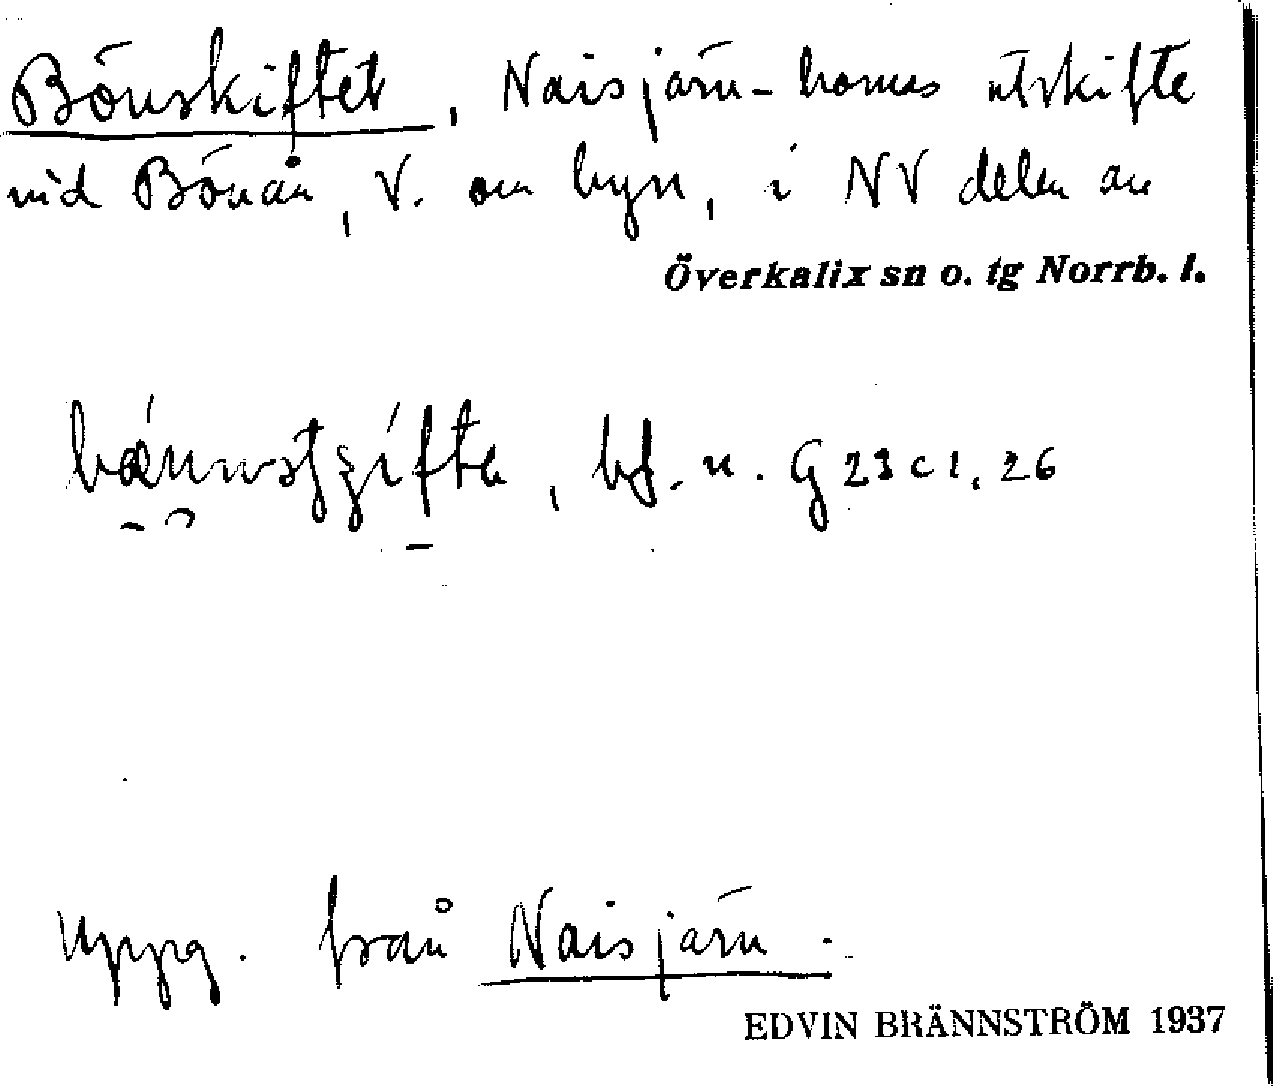 Bönskiftet, Naisjärv-bornas utskifte
vid Bönån, V. om byn, i NV delen av
Överkalix sn o. tg Norrb. l.
bf. n. G 23 c 1, 26
Uppg. från Naisjärv.
EDVIN BRÄNNSTRÖM 1937